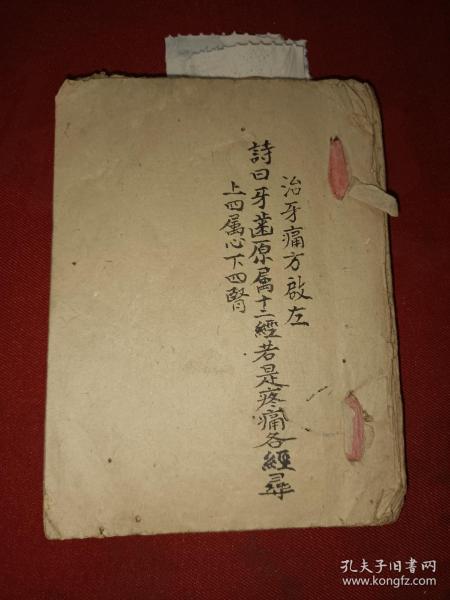 治牙痛方啟左
詩曰牙菌原屬十二經若是疼痛各經尋
上四屬心下四腎
孔夫子旧书网
www.kongfz.com